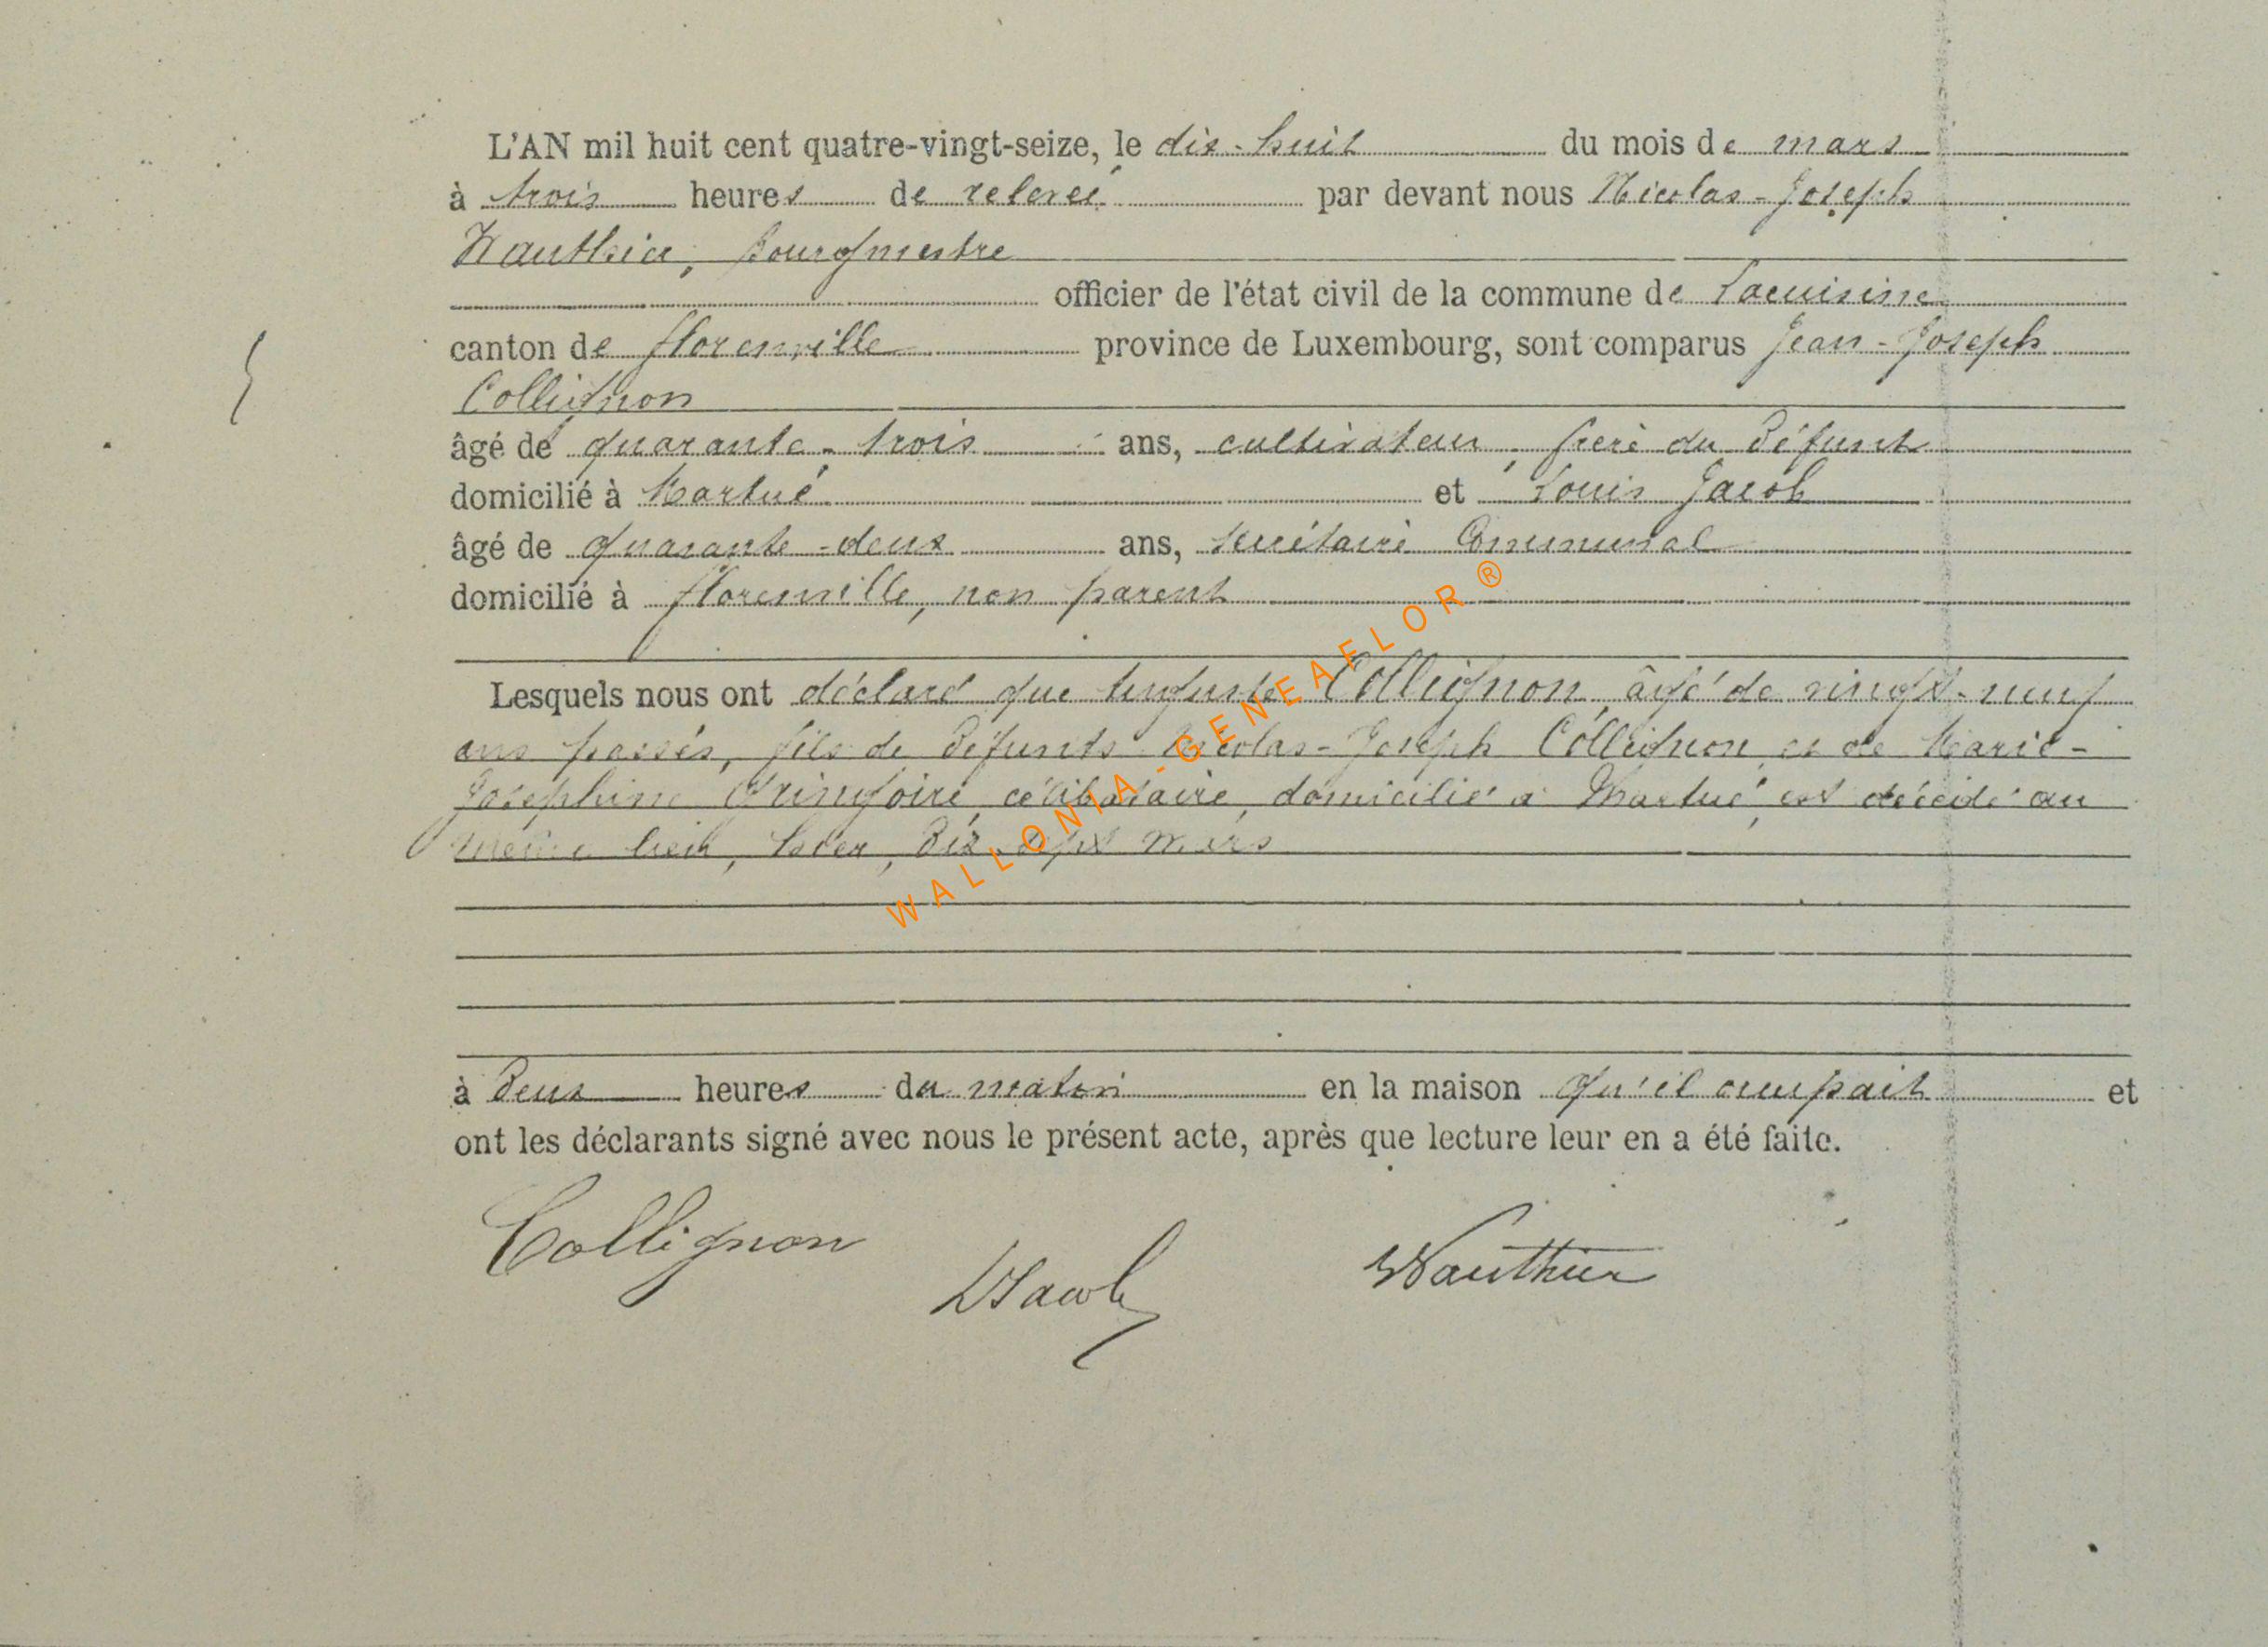 L'AN mil huit cent quatre-vingt-seize, le dix-huit du mois de mars
à trois heures de relevée par devant nous Nicolas-Joseph
Wauthier, bourgmestre
officier de l'état civil de la commune de Lacuisine
canton de florenville province de Luxembourg, sont comparus Jean-Joseph
Collignon
âgé de quarante-trois ans, cultivateur, frère du défunt
domicilié à Martué et Louis Jacob
âgé de quarante-deux ans, secrétaire Communal
domicilié à florenville, non parent
Lesquels nous ont déclaré que Auguste Collignon, âgé de vingt-neuf
ans passés, fils de défunts Nicolas-Joseph Collignon et de Marie-
Joséphine Gringoire, célibataire, domicilié à Martué, est décédé au
même lieu, hier, dix-sept mars
à deux heures du matin en la maison qu'il occupait et
ont les déclarants signé avec nous le présent acte, après que lecture leur en a été faite.
Collignon
LJacob
Wauthier
WALLONIA-GENEAELOR®